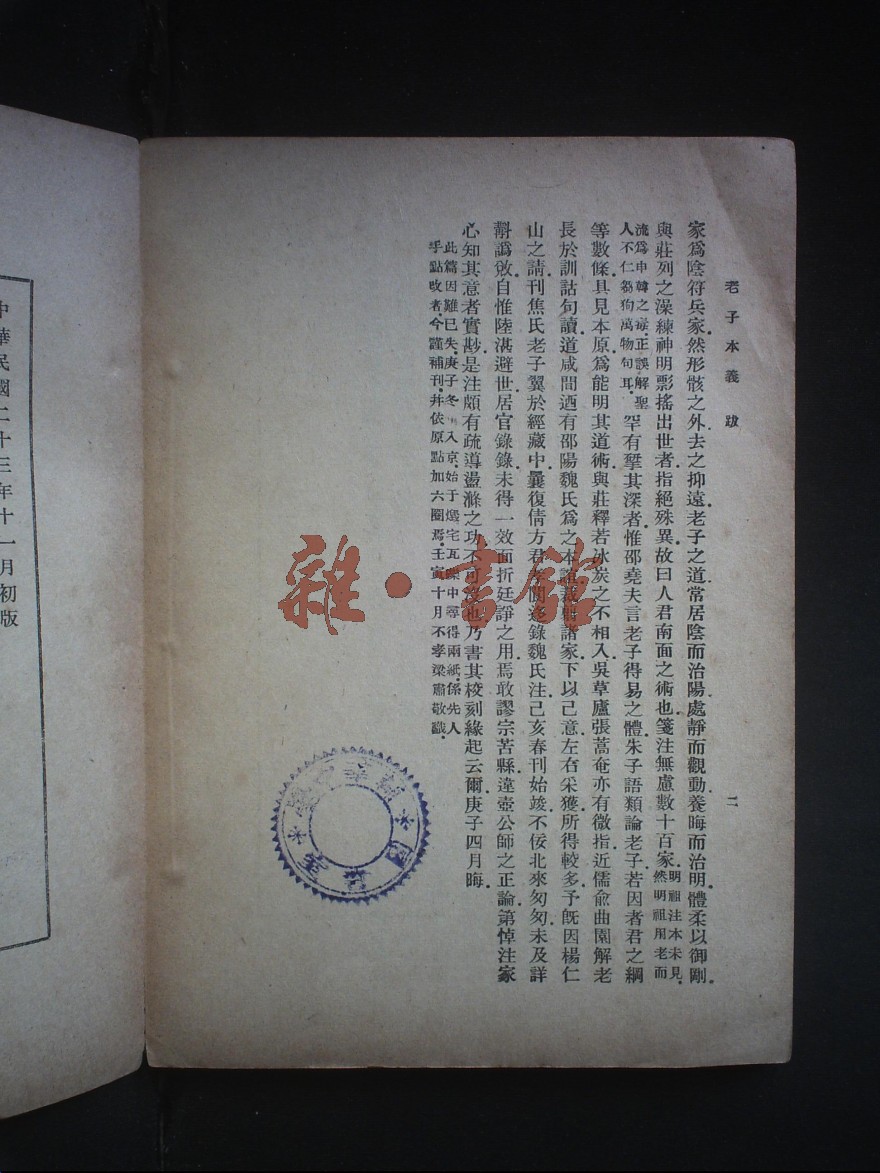 老子本義 跋
二
家爲陰符兵家．然形骸之外．去之抑遠．老子之道．常居陰而治陽．處靜而觀動．養晦而治明．體柔以御剛．
與莊列之澡練神明．飄搖出世者．指絕殊異．故曰人君南面之術也．箋注無慮數十百家．明祖注本未見．然明祖用老而
流爲申韓之毒．正誤解聖人不仁芻狗萬物句耳．罕有揅其深者．惟邵堯夫言老子得易之體．朱子語類論老子若因者君之綱
等數條．具見本原．爲能明其道術．與莊釋若冰炭之不相入．吳草廬張蒿奄亦有微指．近儒俞曲園解老
長於訓詁句讀．道咸間迺有邵陽魏氏爲之本誼．裁諸家．下以己意．左右采獲．所得較多．予旣因楊仁
山之請．刊焦氏老子翼於經藏中．曩復倩方君孝移錄魏氏注．己亥春刊始竣．不佞北來匆匆．未及詳
斠譌敓．自惟陸湛避世．居官錄錄．未得一效面折廷諍之用．焉敢謬宗苦縣．違壺公師之正論．第悼注家
心知其意者實尟．是注頗有疏導盪滌之功．不可沒也．乃書其校刻緣起云爾．庚子四月晦．
此篇因難已失．庚子冬 入京．始于燬宅瓦礫中尋得兩紙．係先人
手點改者．今謹補刊．并依原點加六圈焉．壬寅十月不孝梁肅敬識．
中華民國二十三年十一月初版
雜·書館